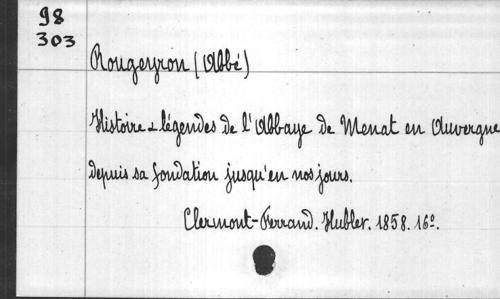 98
303
Rougeyron (Abbé)
Histoire & légendes de l'Abbaye de Menat en Auvergne
depuis sa fondation jusqu'en nos jours.
Clermont-Ferrand. Hubler. 1858. 16º.